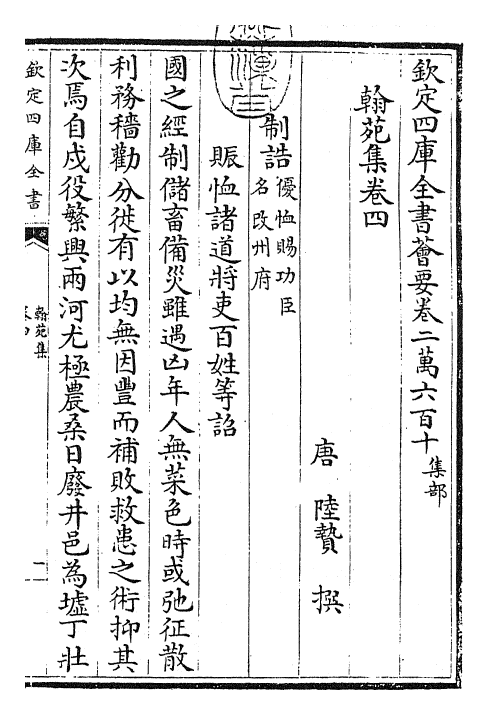 欽定四庫全書薈要卷二萬六百十 集部
翰苑集卷四
唐 陸贄 撰
制誥 優恤賜功臣
名 改州府
賑恤諸道將吏百姓等詔
國之經制儲畜備災雖遇凶年人無菜色時或弛征散
利務穡勸分徙有以均無因豐而補敗救患之術抑其
次焉自戍役繁興兩河尤極農桑日廢井邑為墟丁壯
欽定四庫全書
翰苑集
卷四
一